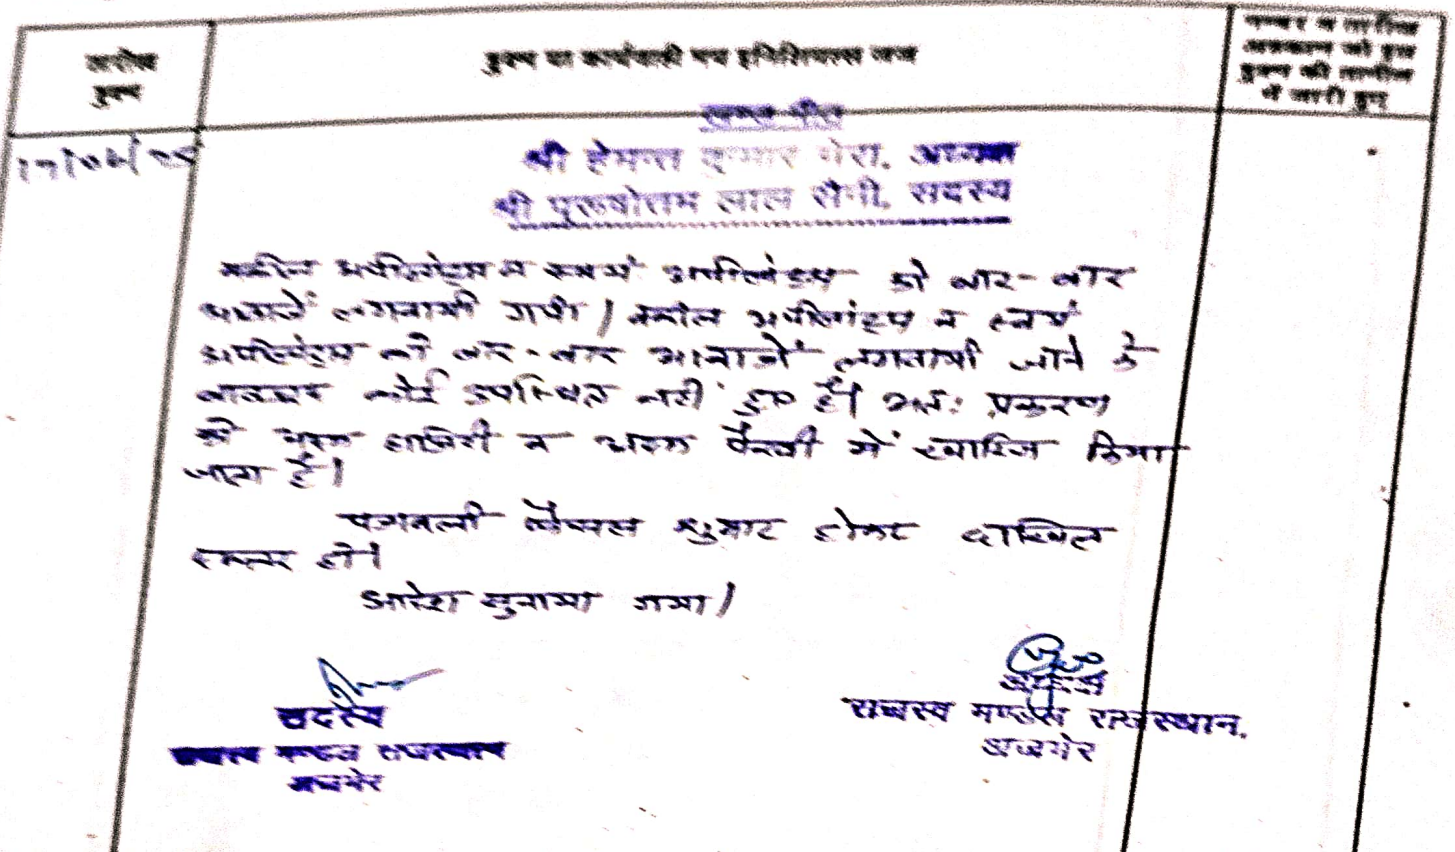 तारीख
हुक्म
हुक्म या कार्यवाही मय इनिशियल्स जज
नम्बर व तारीख
अहकाम जो इस
हुक्म की तामील
में जारी हुए
खण्ड पीठ
श्री हेमन्त कुमार गेरा, अध्यक्ष
श्री पुरूषोत्तम लाल सैनी, सदस्य
वकील अपीलांट्स व स्वयं अपीलांट्स को बार-बार
आवाजें लगवायी गयी। वकील अपीलांट्स व स्वयं
अपीलांट्स को बार-बार आवाजें लगवायी जाने के
बावजूद कोई उपस्थित नहीं हुए हैं। अतः प्रकरण
को अदम हाजिरी व अदम पैरवी में खारिज किया
जाता है।
पत्रावली फैसल शुमार होकर दाखिल
दफ्तर हो।
आदेश सुनाया गया।
सदस्य
राजस्व मण्डल राजस्थान
अजमेर
अध्यक्ष
राजस्व मण्डल राजस्थान,
अजमेर